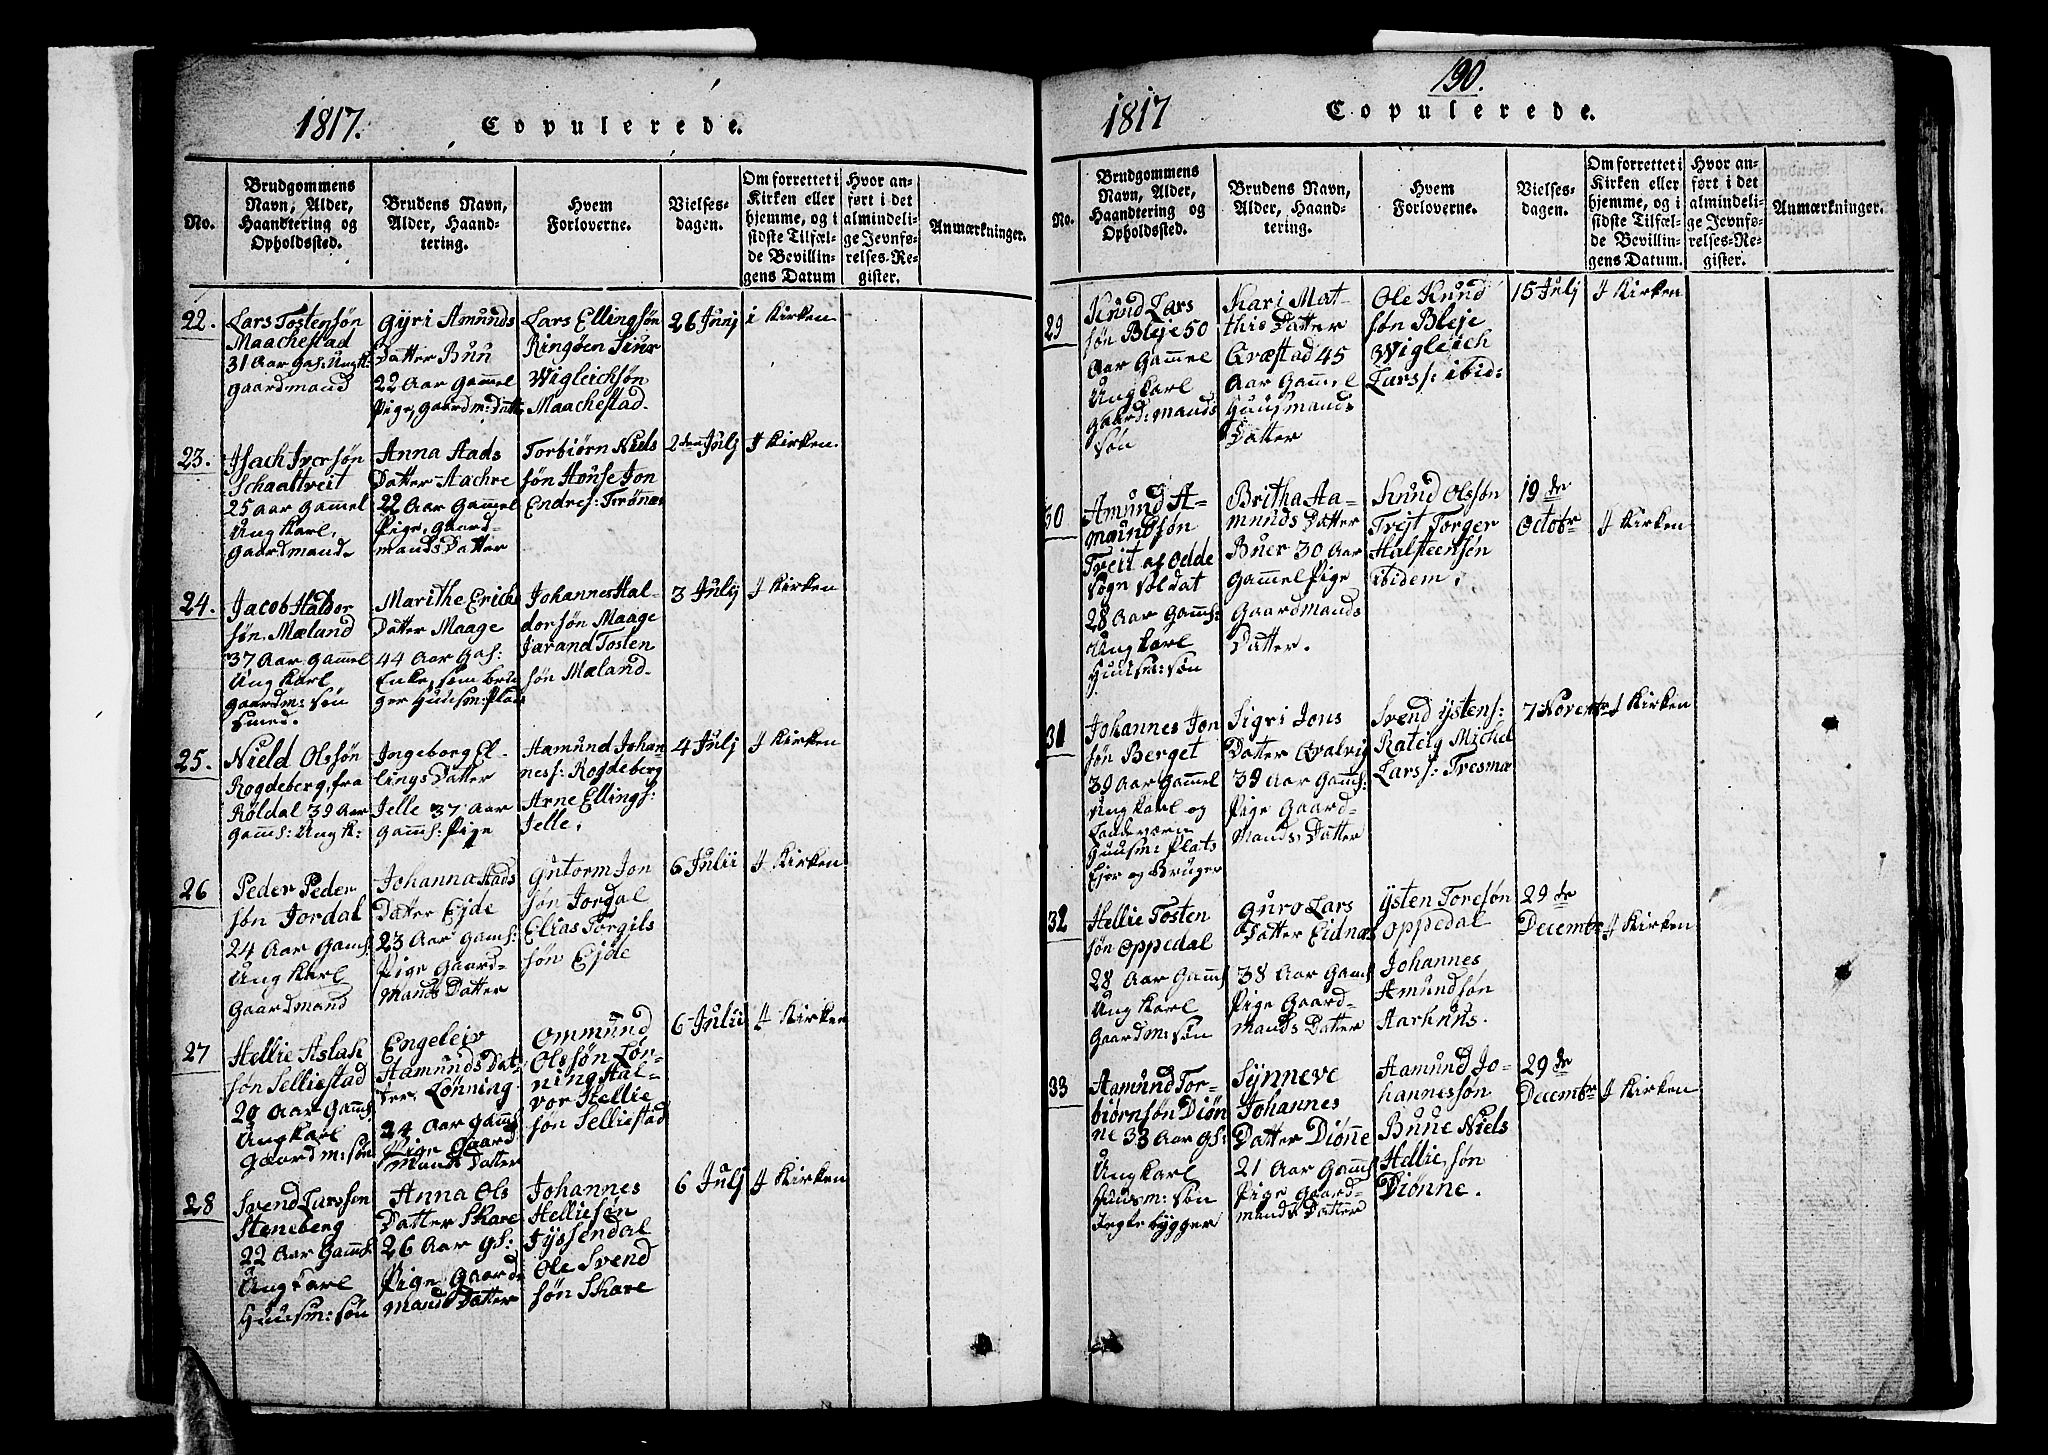 1817.
Copulerede.
No.
Brudgommens
Navn, Alder,
Haandtering og
Opholdssted.
Brudens Navn,
Alder, Haand-
tering.
Hvem
Forloverne.
Vielses-
dagen.
Om forrettet i
Kirken eller
hjemme, og i
sidste Tilfæl-
de Bevillin-
gens Datum
Hvor an-
ført i det
almindeli-
ge Jevnfø-
relses-Re-
gister.
Anmærkninger.
22.
Lars Tostensøn
Maachestad
31 Aar Gas: Ungk:
gaardmand
Gyri Amunds
Datter Buu
22 Aar Gammel
Pige, Gaardm: Datt
Lars Ellingsøn
Ringøen Siur
Wigleichsøn
Maachestad.
26 Junj
i Kirken
23.
Isach Iversøn
Schaaltveit
25 Aar Gammel
Ung Karl,
Gaardmand
Anna Aads
Datter Aachre
22 Aar Gammel
Pige, Gaard-
mands Datter
Torbiørn Niels
søn House Jon
Endres: Torønæs
2den Julj
I Kirken.
24.
Jacob Haldor
søn Mæland
37 Aar Gammel
Ung Karl
gaardm: søn
Smed.
Marithe Erichs
Datter Maage
44 Aar Gas:
Enke, som bru
ger Huusm: Plads
Johannes Hal-
dorsøn Maage
Jarand Tosten
søn Mæland.
3 Julij
I Kirken
25.
Nield Olssøn
Rogdeberg, fra
Røldal 39 Aar
Gamls: Ung K:
Ingeborg El-
lings Datter
Jelle 37 Aar
Gamls: Pige
Aamund Johan
ness: Rogdeberg
Arne Ellings:
Jelle,
4 Julj
I Kirken
26
Peder Peder
søn Jordal
24 Aar Gamls:
Ung Karl
Gaardmand
Johanna Aads
Datter Ejde
23 Aar Gamls:
Pige Gaard-
mands Datter
Gutorm Jon
søn Jordal
Elias Torgils
søn Ejde
6 Julii
I Kirken
27
Hellie Aslak
søn Selliestad
29 Aar Gamls:
Ung Karl
Gaardm: søn
Engeleiv
Aamunds Dat
ter Lønning
24 Aar Gamls
Pige Gaard
mands Datter
Ommund
Olssøn Løn-
ning Hal-
vor Hellie
søn Selliestad
6 Julii
I Kirken
28
Svend Larssøn
Steneberg
22 Aar Gamls:
Ung Karl
Huusm: søn
Anna Ols
Datter Skare
26 Aar Gs:
Pige Gaard
mands Datter
Johannes
Helliesøn
Jyssendal
Ole Svend
søn Skare
6 Julj
I Kirken
190.
1817
Copulerede.
No.
Brudgommens
Navn, Alder,
Haandtering og
Opholdssted.
Brudens Navn,
Alder, Haand-
tering.
Hvem
Forloverne.
Vielses-
dagen.
Om forrettet i
Kirken eller
hjemme, og i
sidste Tilfæl-
de Bevillin-
gens Datum.
Hvor an-
ført i det
almindeli-
ge Jevnfø-
relses-Re-
gister.
Anmærkninger.
29
Knud Lars
søn Bleje 50
Aar Gammel
Ung Karl
Gaard: mands
søn
Kari Mat-
this Datter
Græstad 45
Aar Gammel
Huusmands
Datter
Ole Knud
søn Bleje
Wigleich
Larss: ibid:
15 Julj
I Kirken
30
Amund A-
mundsøn
Treit af Odde
Sogn Soldat
28 Aar Gamls:
Ung Karl
Huusm: søn
Britha Aa-
munds Datter
Buer 30 Aar
Gammel Pige
Gaardmands
Datter.
Knud Olssøn
Trejt Torger
Halsteensøn
ibidem,
19de
Octobr
I Kirken
31
Johannes Jon
søn Berget
39 Aar Gammel
Ung Karl og
Landeværn
Huusm: Plats
Ejer og Bruger
Sigri Jons
Datter Qvalvig
39 Aar Gamls:
Pige Gaard-
Mands Datter
Svend Ystens:
Rateig Michel
Larss: Tresmæ
7 Novembr
I Kirken
32
Hellie Tosten
søn Oppedal
28 Aar Gamls
Ung Karl
Gaardm: søn
Guro Lars
Datter Eidnæs
38 Aar Gamls
Pige Gaard-
mands Datter
Ysten Toresøn
Oppedal
Johannes
Amundsøn
Aarhuus.
29de
Decembr
I Kirken
33
Aamund Tor-
biørnsøn Diøn
ne 33 Aar Gs:
Ung Karl
Huusm: søn
Jegtebygger
Synneve
Johannes
Datter Diønne
21 Aar Gamls
Pige Gaard-
mands Datter
Aamund Jo-
hannessøn
Bune Niels
Hellie søn
Diønne.
29de
Decembr
I Kirken